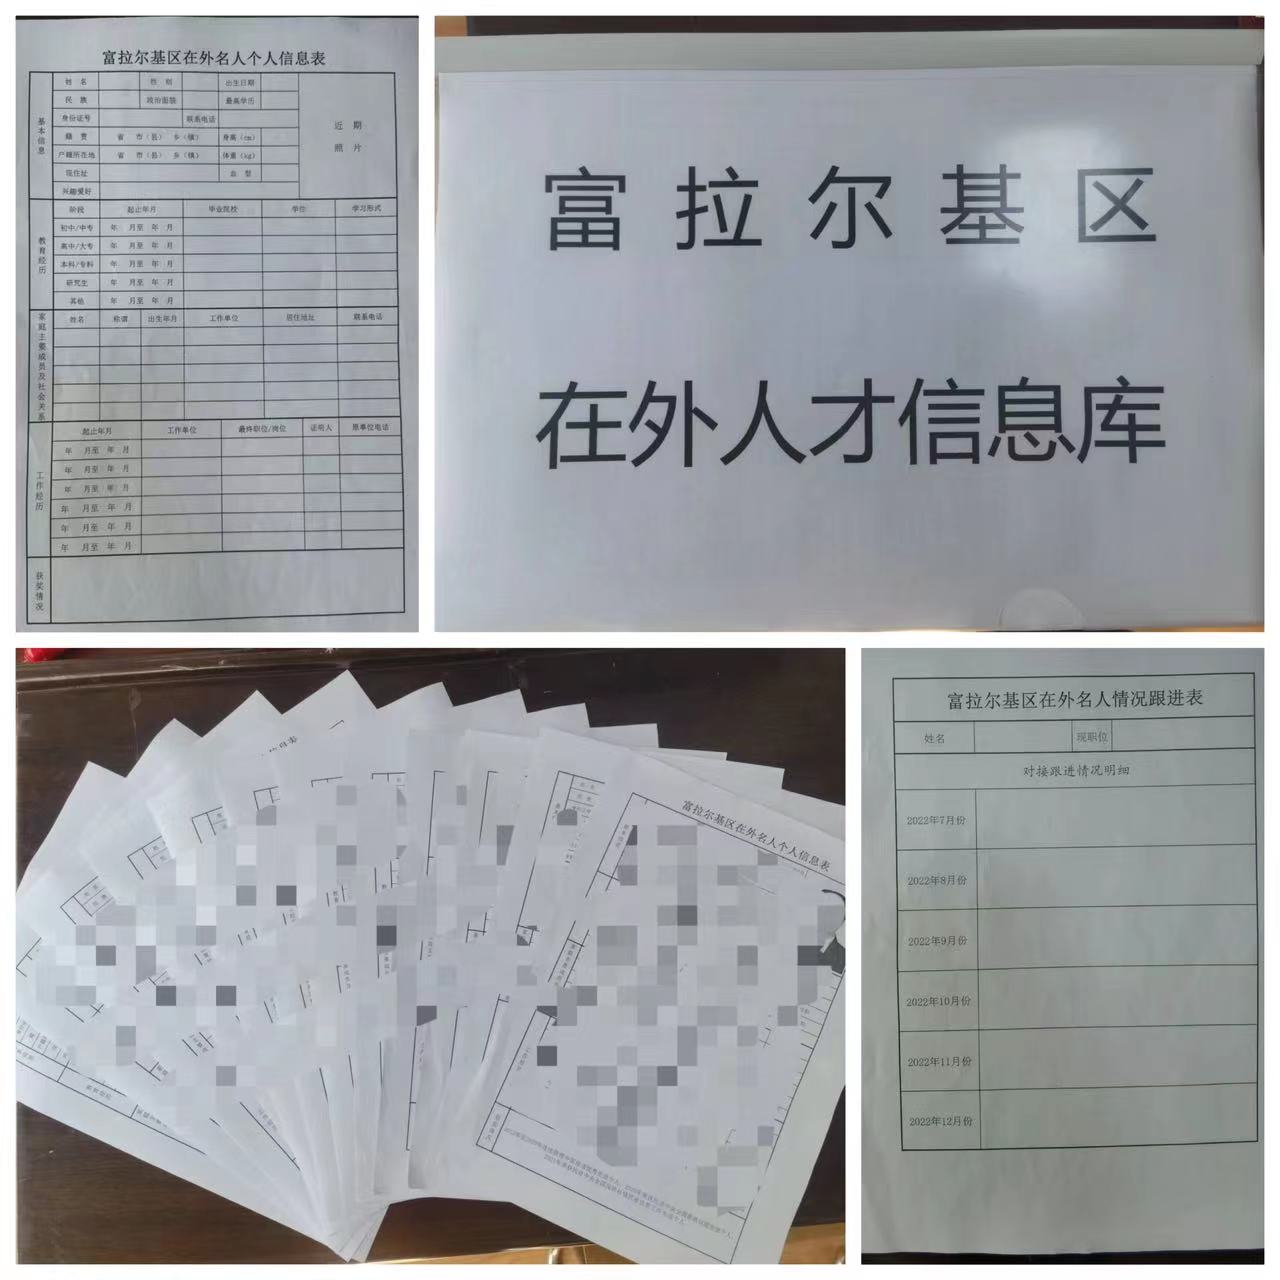 富拉尔基区在外名人个人信息表
基本信息
姓 名 性 别 出生日期
民 族 政治面貌 最高学历
身份证号 联系电话
籍 贯 省 市（县） 乡（镇） 身高（cm）
户籍所在地 省 市（县） 乡（镇） 体重（kg）
现住址 血 型
兴趣爱好
近 期
照 片
教育经历
阶段 起止年月 毕业院校 学位 学习形式
初中/中专 年 月至 年 月
高中/大专 年 月至 年 月
本科/专科 年 月至 年 月
研究生 年 月至 年 月
其他 年 月至 年 月
家庭主要成员及社会关系
姓名 称谓 出生年月 工作单位 居住地址 联系电话
工作经历
起止年月 工作单位 最终职位/岗位 证明人 原单位电话
年 月至 年 月
年 月至 年 月
年 月至 年 月
年 月至 年 月
年 月至 年 月
年 月至 年 月
获奖情况
富拉尔基区
在外人才信息库
富拉尔基区在外名人个人信息表
富拉尔基区在外名人情况跟进表
姓名 现职位
对接跟进情况明细
2022年7月份
2022年8月份
2022年9月份
2022年10月份
2022年11月份
2022年12月份